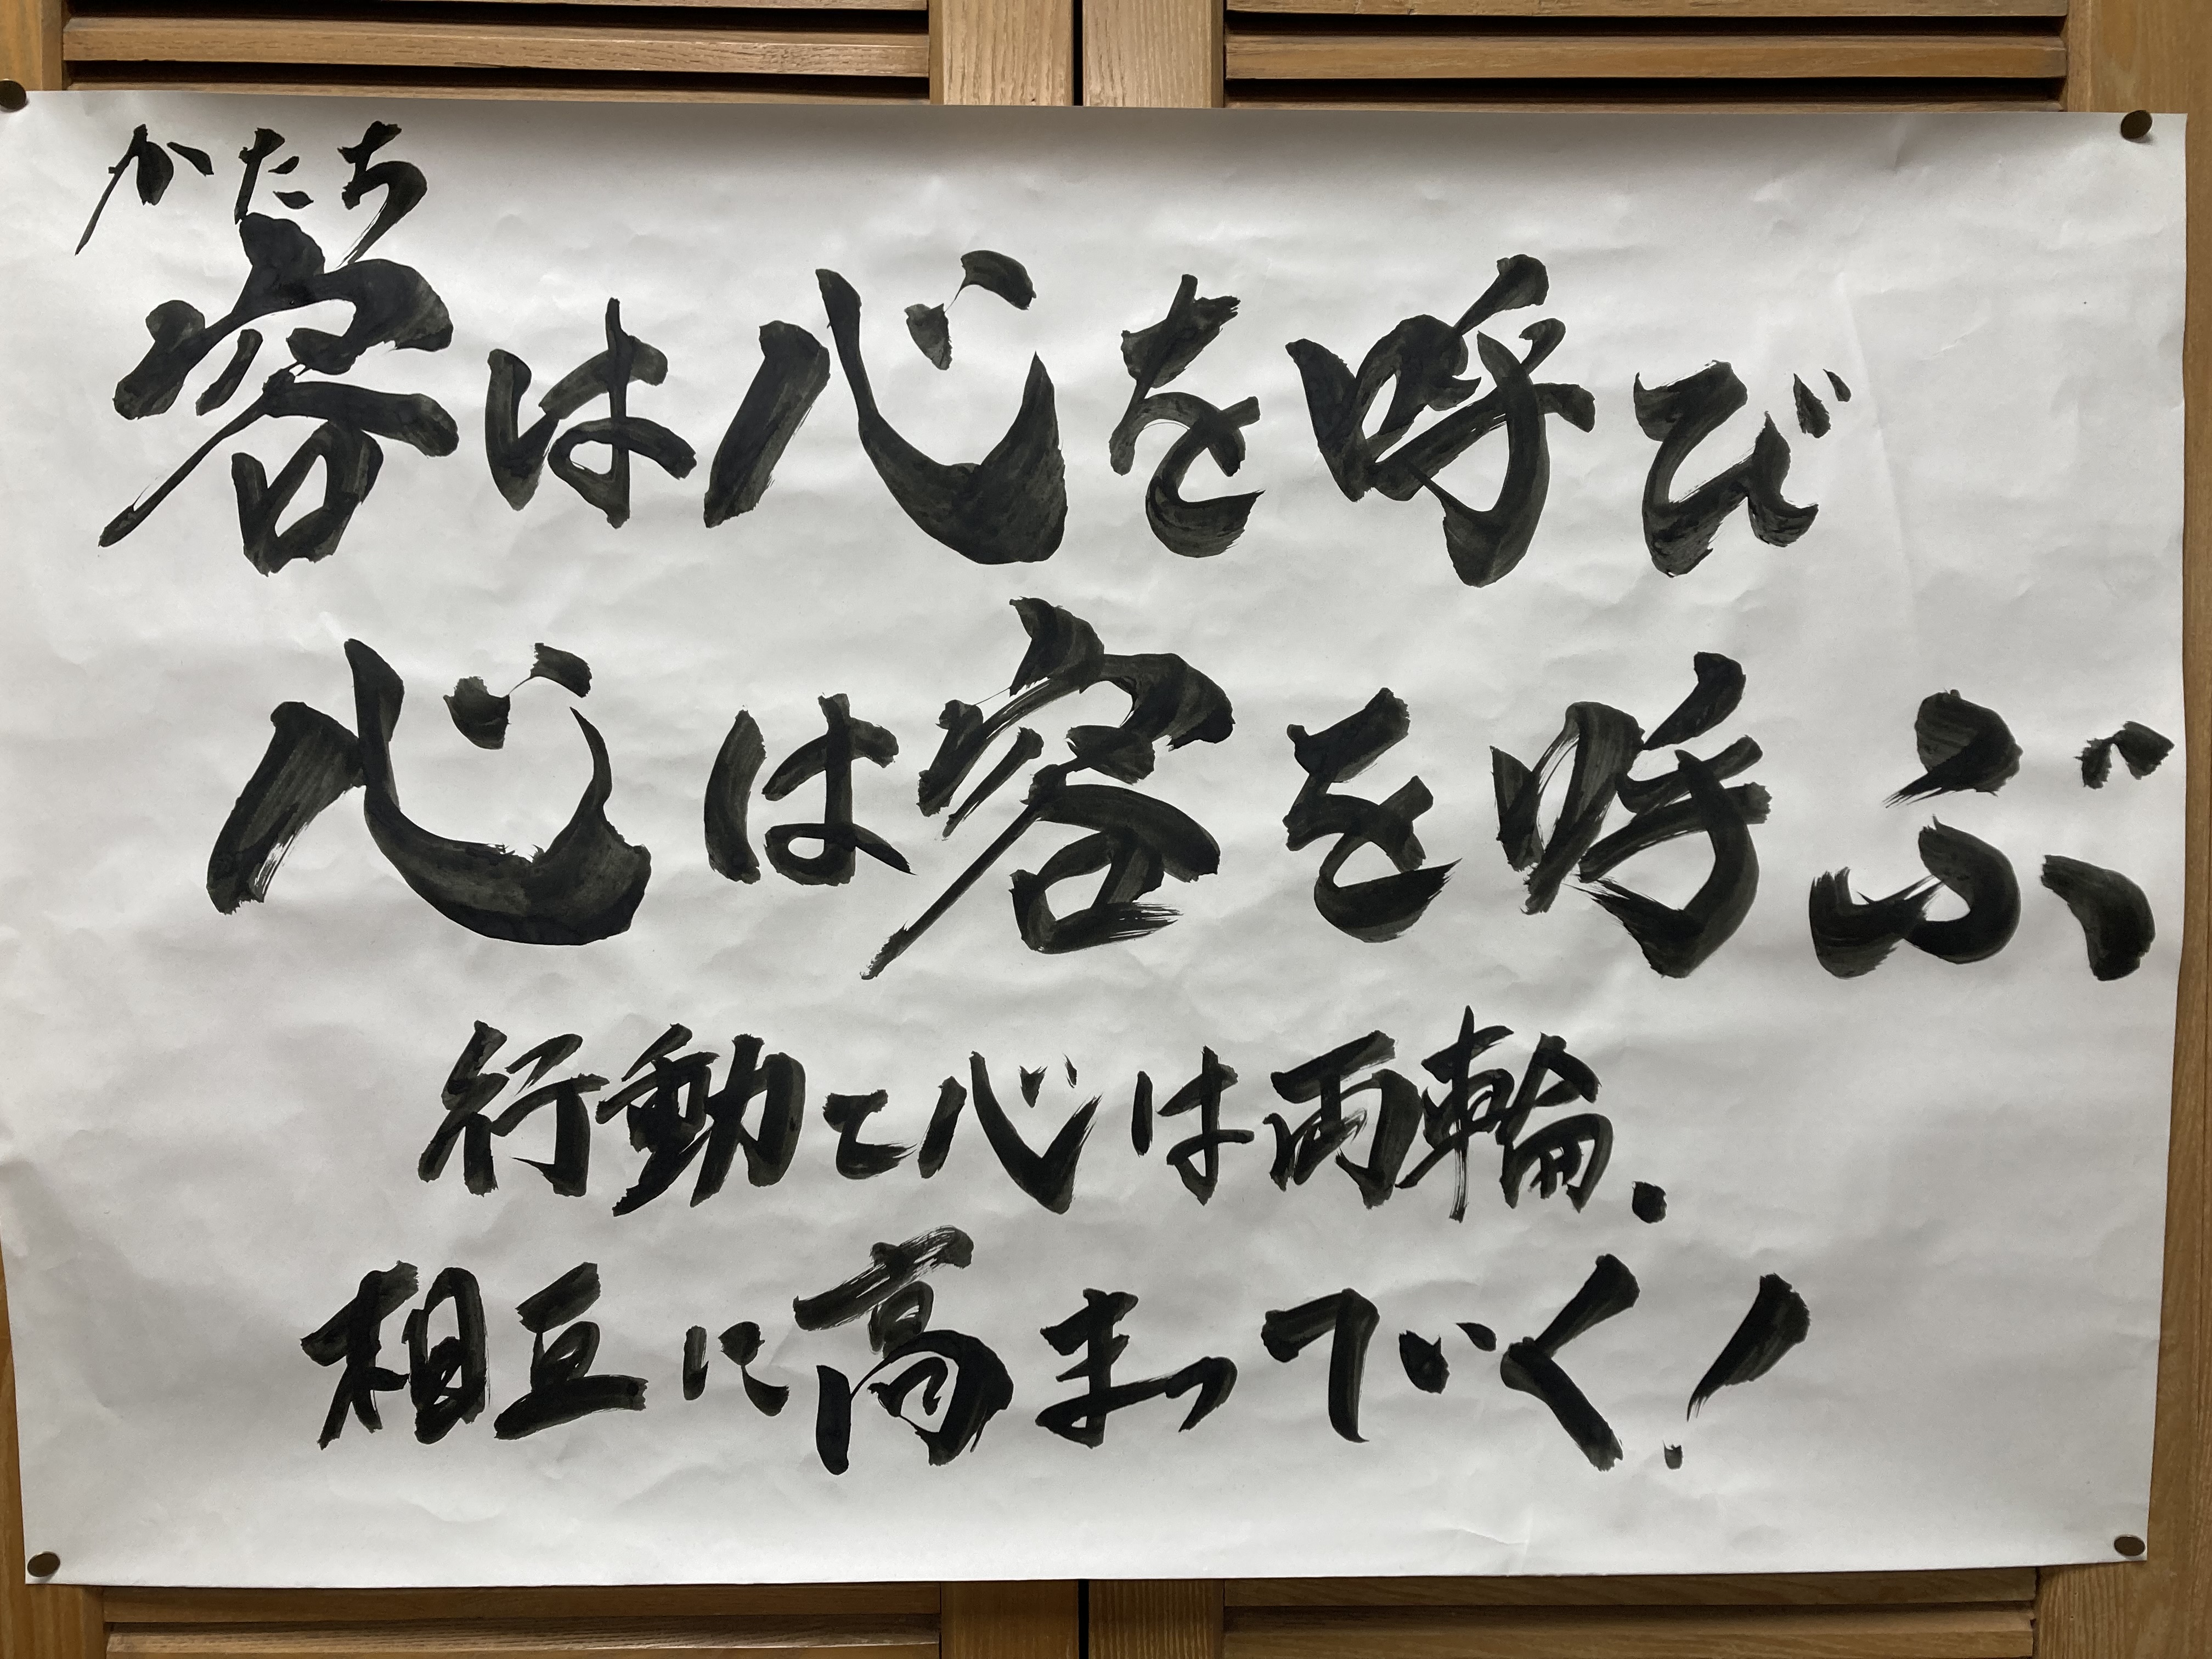 かたち
容は心を呼び
心は容を呼ぶ
行動と心は両輪.
相互に高まっていく!